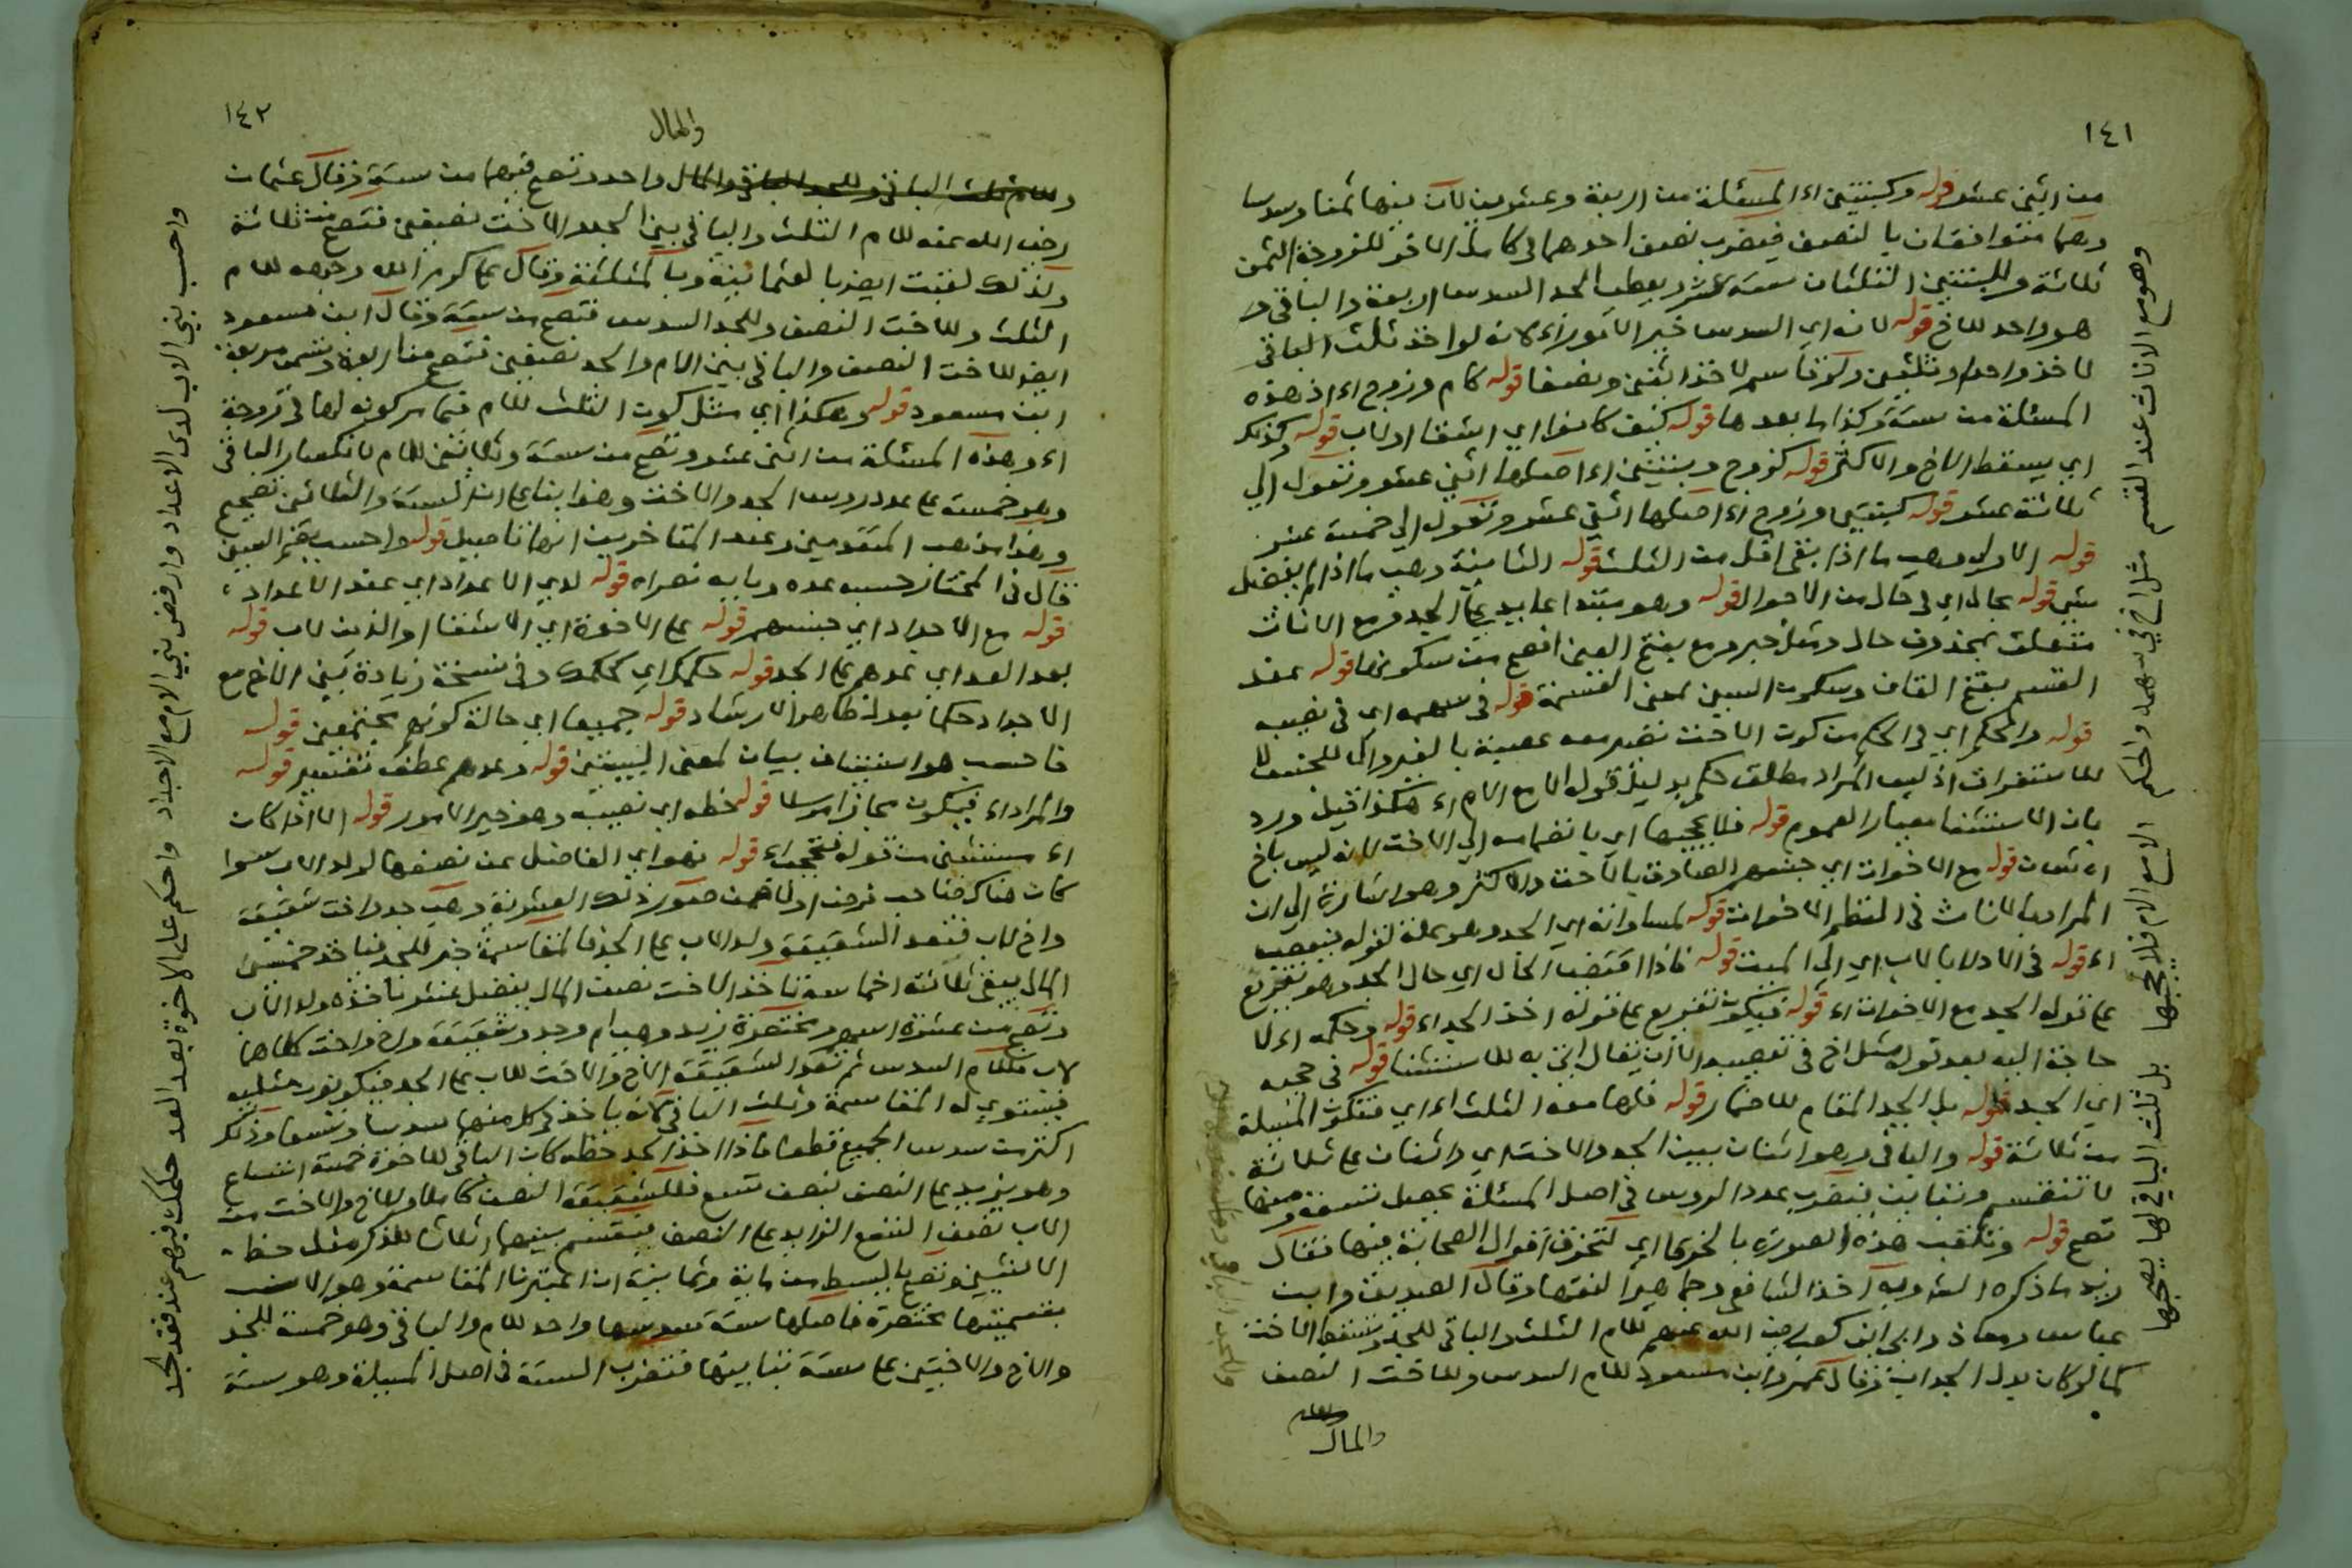 ١٤١
من اثنى عشر قوله وكبنتين اء المسئلة من اربعة وعشرين لان فيها ثمنا وسدسا
وهما متوافقان بالنصف فيضرب نصف احدهما في كامل الاخر للزوجة الثمن
ثلاثة وللبنتين الثلثان ستة عشر ويعطى الجد السدس اربعة والباقي
هو واحد للاخ قوله لانه اي السدس خير الامور اء لانه لو اخذ ثلث الباقي
لاخذ واحدا وثلثين ولو قاسم لاخذ اثنين ونصفا قوله كام وزوج اء اذ هذه
المسئلة من ستة وكذا ما بعدها قوله كيف كانوا اي اشقا او لاب قوله وكذلك
اي يسقط الاخ والاكثر قوله كزوج وبنتين اء اصلها اثنى عشر وتعول الى
ثلاثة عشر قوله كبنتين وزوج اء اصلها اثنى عشر وتعول الى خمسة عشر
قوله الاولى وهي ما اذا بقى اقل من الثلث قوله الثانية وهي ما اذا لم يفضل
شي قوله بحال اي في حال من الاحوال قوله وهو مبتدا عايد على الجد ومع الاناث
متعلق بمحذوف حال ومثل خبر ومع بفتح العين افصح من سكونها قوله عند
القسم بفتح القاف وسكون السين بمعنى القسمة قوله في سهمه اي في نصيبه
قوله والحكم اي في الحكم من كون الاخت تصير معه عصبة بالغير وال للجنس لا
للاستغراق اذ ليس المراد مطلق حكم بدليل قوله الا مع الام اء هكذا قيل ورد
بان الاستثنا معيار العموم قوله فلا يحجبها اي بانضمامه الى الاخت لانه ليس باخ
قوله مع الاخوات اي جنسهم الصادق بالاخت والاكثر وهو اشارة الى ان
المراد بالاناث في النظم الاخوات قوله لمساواته اي الجد وهو علة لقوله فيعصب
اء قوله في الادلا بالاب اي الى الميت قوله فاذا اقتضى الحال اي حال الجد وهو تفريع
على قوله الجد مع الاخوات اء قوله فيكون تفريع على قوله اخذ الجد اء قوله وحكمه اء لا
حاجة اليه بعد قوله مثل اخ في تعصيب الا ان يقال اتى به للاستثنا قوله في حجبه
اي الجد قوله بل الجد المقام للاضمار قوله فلها معه الثلث اء اي فتكون المسئلة
من ثلاثة قوله والباقي وهو اثنان بين الجد والاخت اي واثنان على ثلاثة
لا تنقسم وتباين فيضرب عدد الروس في اصل المسئلة يحصل تسعة ومنها
تصح قوله وتلقب هذه الصورة بالخرقا اي لتخرق اقوال الصحابة فيها فقال
زيد ما ذكره الش وبه اخذ الشافعي وجماهير الفقها وقال الصديق وابن
عباس ومعاذ وابى ابن كعب رضي الله عنهم للام الثلث والباقي للجد وتسقط الاخت
كما لو كان بدل الجد اب وقال عمر وابن مسعود للام السدس وللاخت النصف
والمال
وهو مع الاناث عند القسم مثل اخ في سهمه والحكم
الا مع الام فلا يحجبها بل ثلث الباقي لها يصحبها
١٤٢
والمال
وللام ثلث الباقي وللجد الباقي والمال واحد وتصح قسمها من ستة وقال عثمان
رضي الله عنه للام الثلث والباقي بين الجد والاخت نصفين فتصح من ثلاثة
ولذلك لقبت ايضا بالعثمانية وبالمثلثة وقال علي كرم الله وجهه للام
الثلث وللاخت النصف وللجد السدس فتصح من ستة وقال ابن مسعود
ايضا للاخت النصف والباقي بين الام والجد نصفين فتصح من اربعة وتسمى مربعة
ابن مسعود قوله وهكذا اي مثل كون الثلث للام فيما مر كونه لها في زوجة
اء وهذه المسئلة من اثنى عشر وتصح من ستة وثلاثين للام لانكسار الباقي
وهو خمسة على عدد روس الجد والاخت وهذا بنا على ان الستة والثلاثين تصحيح
وهذا مذهب المتقدمين وعند المتاخرين انها تاصيل قوله واحسب بضم السين
قال في المختار حسبه عده وبابه نصر اه قوله لدى الاعداد اي عند الاعداد
قوله مع الاجداد اي جنسهم قوله على الاخوة اي الاشقا او الذين لاب قوله
بعد العد اي عدهم على الجد قوله حكمك اي كحكمك وفي نسخة زيادة بين الاخ مع
الاجداد حكما بعد ظاهر الارشاد قوله جميعا اي حالة كونهم مجتمعين قوله
فاحسب هو استيناف بيان لمعنى البيتين قوله وعدهم عطف تفسير قوله
والمراد اء فيكون مجازا مرسلا قوله حظه اي نصيبه وهو خير الامور قوله الا اذا كان
اء مستثنى من قوله فتحجب اء قوله فهو اي الفاضل عن نصفها لولد الاب سوا
كان هناك صاحب فرض اولا فمن صور ذلك العشرية وهي جد واخت شقيقة
واخ لاب فتعد الشقيقة ولد الاب على الجد فالمقاسمة خير للجد فياخذ خمسى
المال يبقى ثلاثة اخماسه تاخذ الاخت نصف المال يفضل عشر ياخذه ولد الاب
وتصح من عشرة اسهم ومختصرة زيد وهي ام وجد وشقيقة واخ واخت كلاهما
لاب فللام السدس ثم تعد الشقيقة الاخ والاخت للاب على الجد فيكونون مثليه
فيستوي له المقاسمة وثلث الباقي لانه ياخذ في كل منهما سدسا وتسعا وذلك
اكثر من سدس الجميع قطعا فاذا اخذ الجد حظه كان الباقي للاخوة خمسة اتساع
وهو يزيد على النصف بنصف تسع فللشقيقة النصف كاملا وللاخ والاخت من
الاب نصف التسع الزايد على النصف فيقسم بينهما اثلاثا للذكر مثل حظ
الانثيين وتصح بالبسط من ماية وثمانية ان اعتبرنا المقاسمة وهو الانسب
بتسميتها مختصرة فاصلها ستة سدسها واحد للام والباقي وهو خمسة للجد
والاخ والاختين على ستة تباينها فتضرب الستة في اصل المسئلة وهو ستة
واحسب بني الاب لدى الاعداد وارفض بني الام مع الاجداد
واحكم على الاخوة بعد العد حكمك فيهم عند فقد الجد